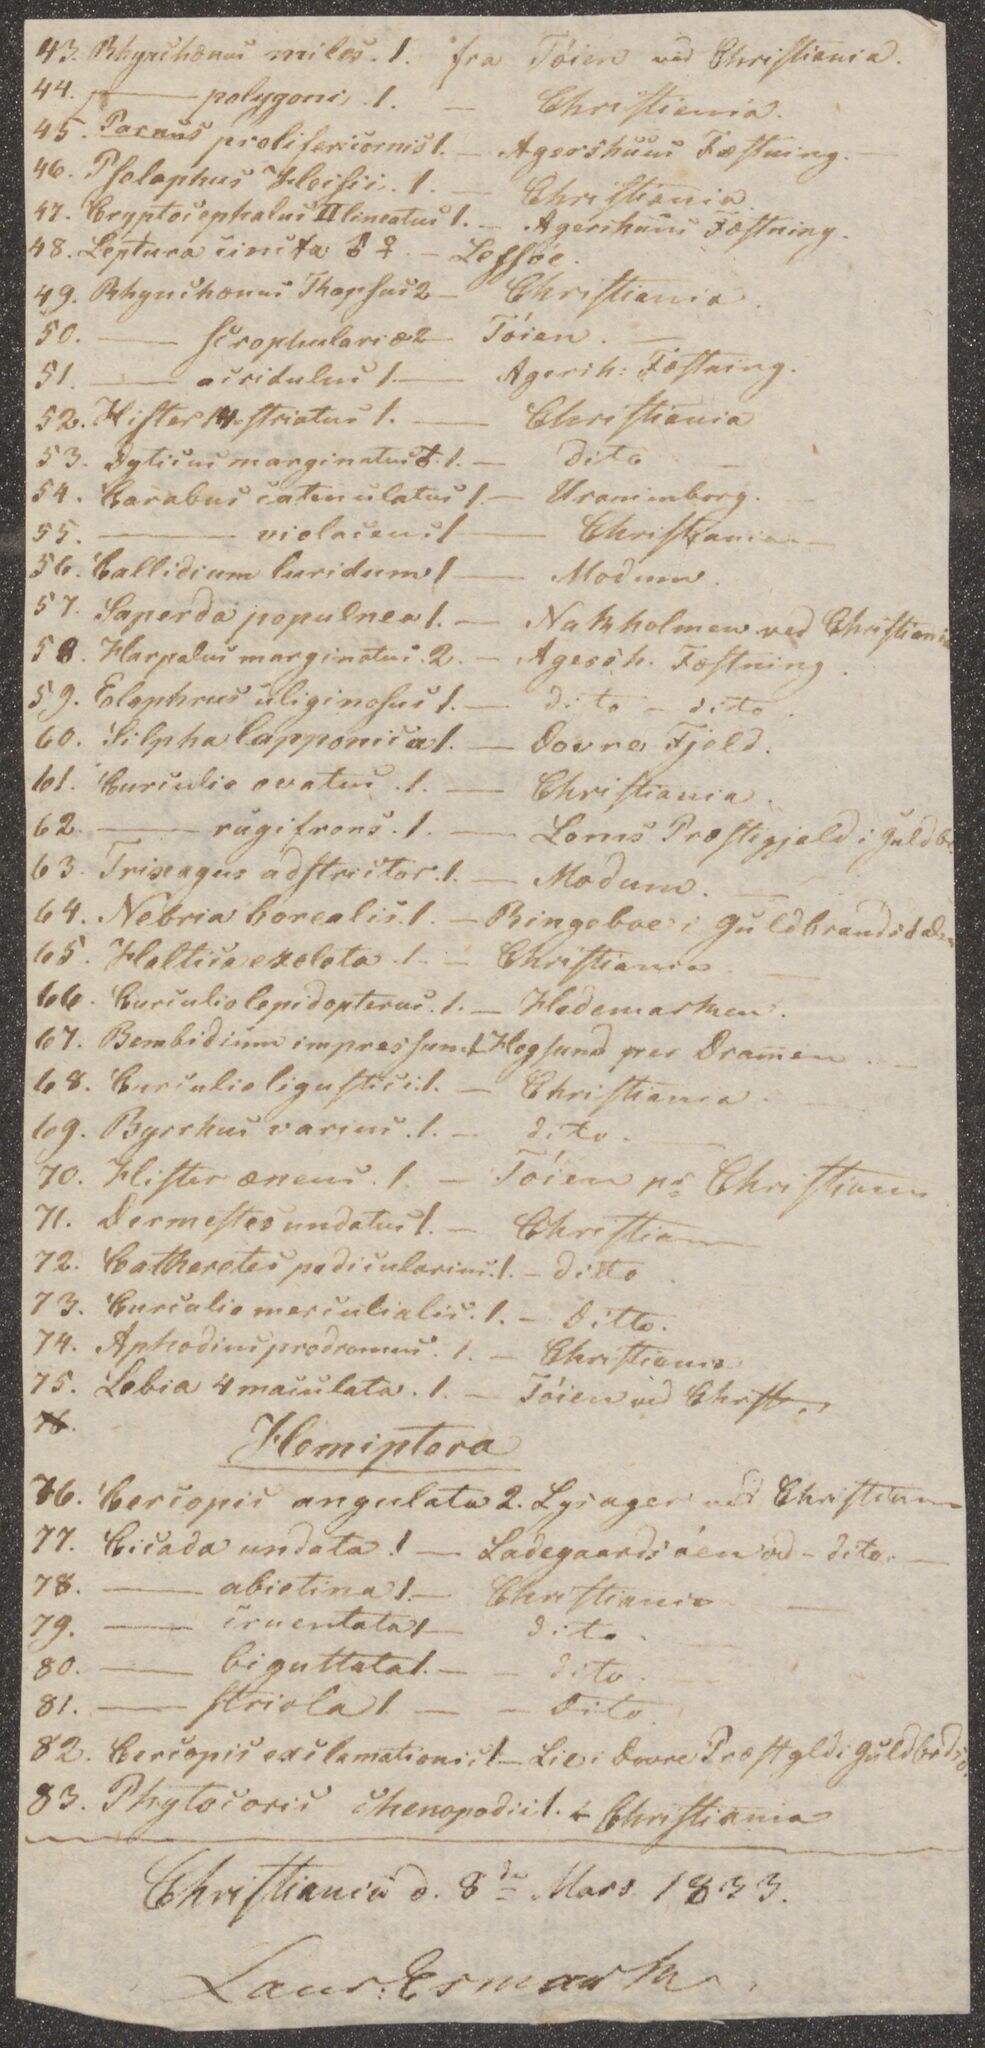 43. Rhynchænus miles. 1. fra Töien ved Christiania.
44. —— polygoni. 1. — Christiania.
45. Parnus prolifericornis 1. — Agershuus Fæstning. —
46. Pselaphus Heisii. 1. — Christiania.
47. Cryptocephalus II lineatus 1. — Agerihuus Fæstning.
48. Leptura cincta ♂ ♀. — Lessöe.
49. Rhynchænus Thapsus 2 — Christiania.
50. —— scrophulariæ 2 — Töien. —
51. —— acridulus 1. — Agersh: Fæstning.
52. Hister 14 striatus 1. — Christiania
53. Dyticus marginatus ♂. 1. — dito —
54. Carabus catenulatus 1 — Uranimborg. —
55. —— violaceus 1 — Christiania —
56. Callidium luridum 1 — Modum.
57. Saperda populnea 1. — Nakholmen ved Christiania
58. Harpalus marginatus. 2. — Agersh. Fæstning.
59. Elaphrus uliginosus 1. — dito — dito.
60. Silpha lapponica 1. — Dovre Fjeld.
61. Curculio ovatus. 1. — Christiania.
62. —— rugifrons. 1. — Loms Præstegjeld i Guldbr
63. Trixagus adstrictor. 1. — Modum. —
64. Nebria borealis. 1. — Ringeboe i Guldbrandsdalen
65. Haltica exoleta. 1. — Christiania —
66. Curculio lepidopterus. 1. — Hedemarken.
67. Bembidium impressum 1. Hogsund per Dramen. —
68. Curculio ligustici. 1. — Christiania. —
69. Byrrhus varius. 1. — dito. —
70. Hister æneus. 1. — Töien pr Christiania
71. Dermestes undatus 1. — Christian
72. Catheretes pedicularius. 1. — ditto.
73. Curculio mercurialis. 1. — Ditto.
74. Aphodius prodromus. 1. — Christiania
75. Lebia 4 maculata. 1. — Töien ved Christ.
76.
Hemiptera
76. Cercopis angulata 2. Lysager ved Christiania
77. Cicada undata. 1 — Ladegaardsöen ved — dito. —
78. —— abietina 1. — Christiania —
79. —— cruentata 1 — dito. —
80. —— biguttata 1. — — dito.
81. —— striola 1. — — Dito.
82. Cercopis exclamationis 1 — Lie i Dovre Præstgld i Guldbrds
83. Phytocoris chenopodii 1. — Christiania
Christiania d. 8de Mars 1833.
Laur: Esmark.